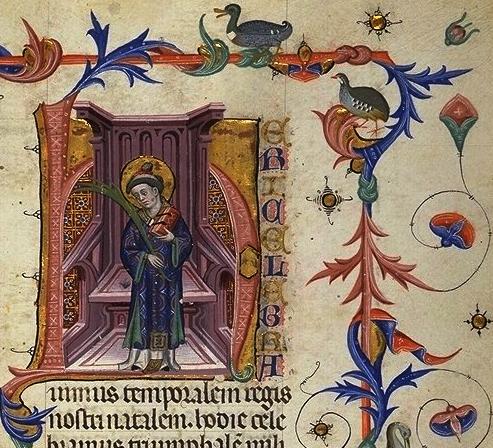 HERICELEBRA
uimus temporalem regis
nostri natalem. hodie cele
bramus triumphalē mili